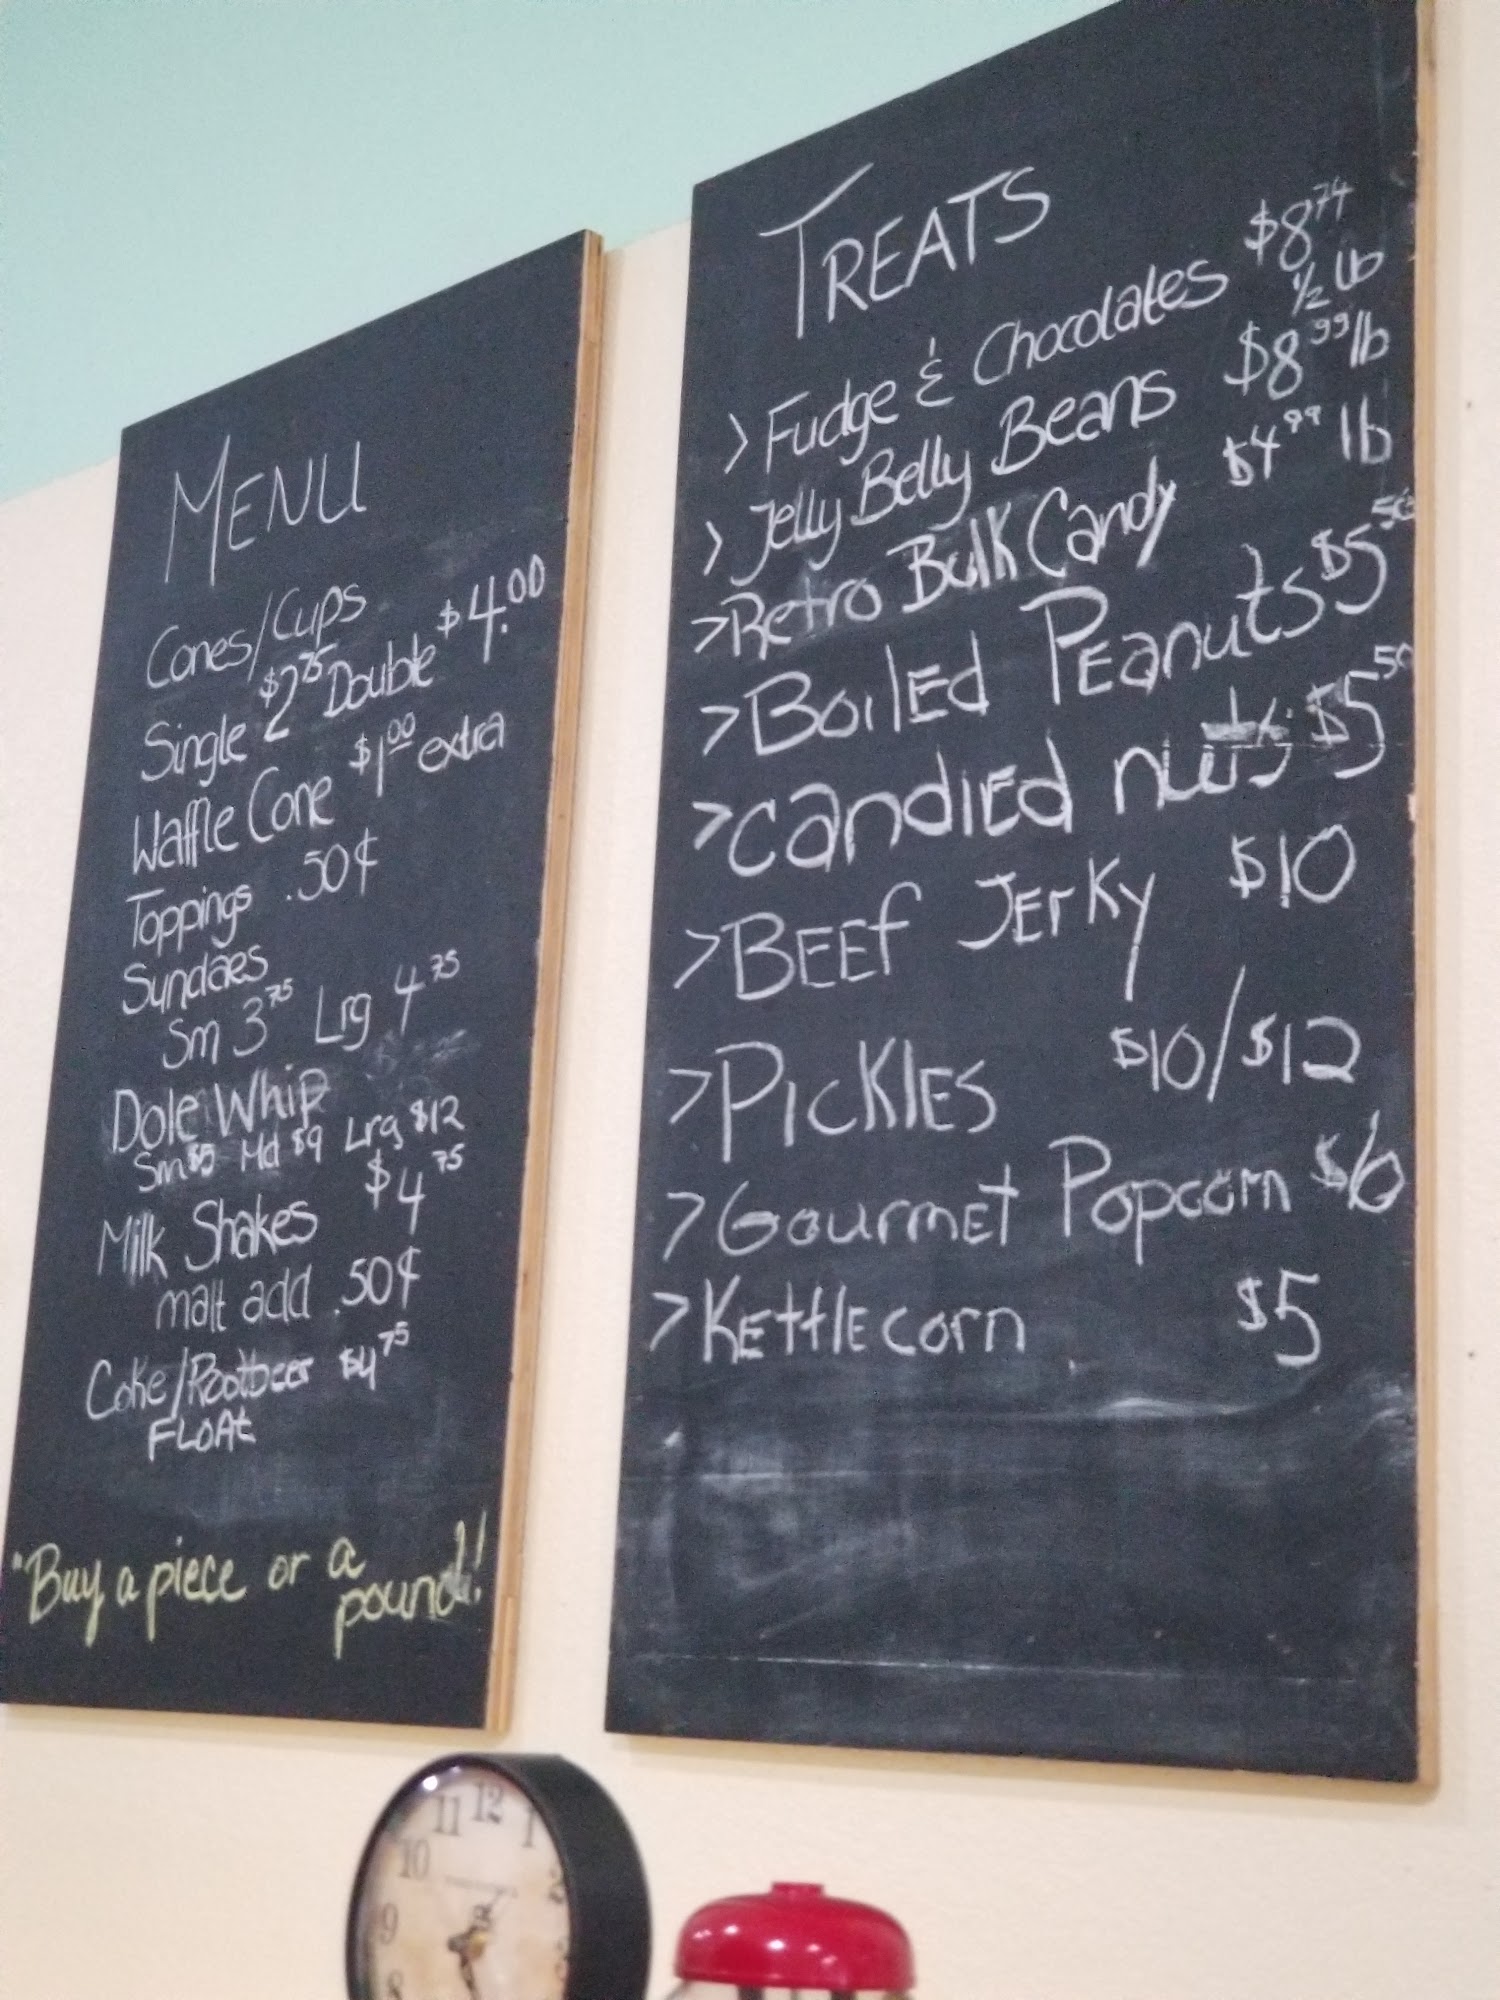 MENU
Cones/Cups
Single $2.75 Double $4.00
Waffle Cone $1.00 extra
Toppings .50¢
Sundaes
Sm 3.75 Lrg 4.75
Dole Whip
Sm $5 Md $9 Lrg $12
Milk Shakes $4.75
malt add .50¢
Coke/Rootbeer $4.75
FLOAt
"Buy a piece or a
pound!
TREATS
>Fudge & Chocolates $8.74
1/2 lb
>Jelly Belly Beans $8.99 lb
>Retro Bulk Candy $4.99 lb
>BoilEd PEanuts $5.50
>candiEd nuts $5.50
>BEEf JErKy $10
>PicKlES $10/$12
>GourmEt Popcorn $6
>KEttlEcorn $5
11 12 1
10 2
9
8